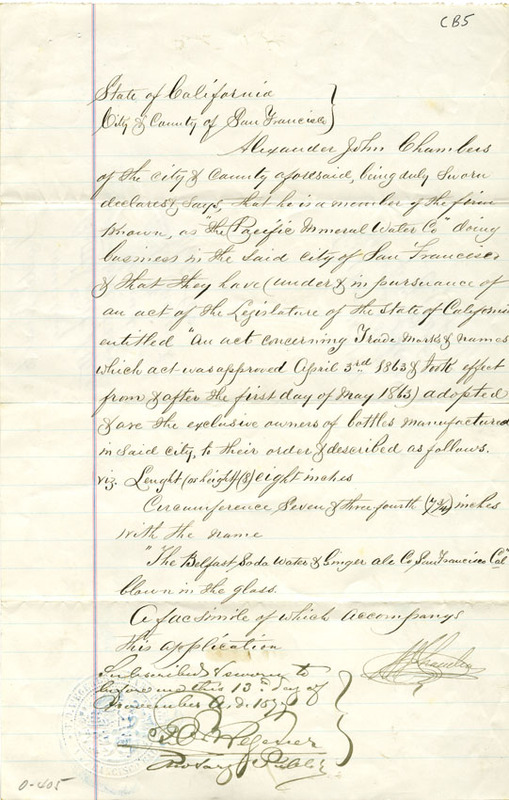 CB5
State of California
City & County of San Francisco }
Alexander John Chambers
of the City & County aforesaid, being duly sworn
declares & says, that he is a member of the firm
known, as "the Pacific Mineral Water Co" doing
business in the said City of San Francisco
& that they have (under & in pursuance of
an act of the Legislature of the state of California
entitled "An act concerning Trade Marks & names
which act was approved April 3rd 1863 & took effect
from & after the first day of May 1863) adopted
& are the exclusive owners of bottles manufactured
in said city, to their order & described as follows.
viz. Lenght (or height) (8) eight inches
Circumference Seven & three fourth (7 3/4) inches
with the name
"The Belfast Soda Water & Ginger ale Co San Francisco Cal"
blown in the glass.
A facsimile of which accompanys
this application
Subscribed & sworn to
before me this 13th day of
November A.D.
Notary Public
0-405